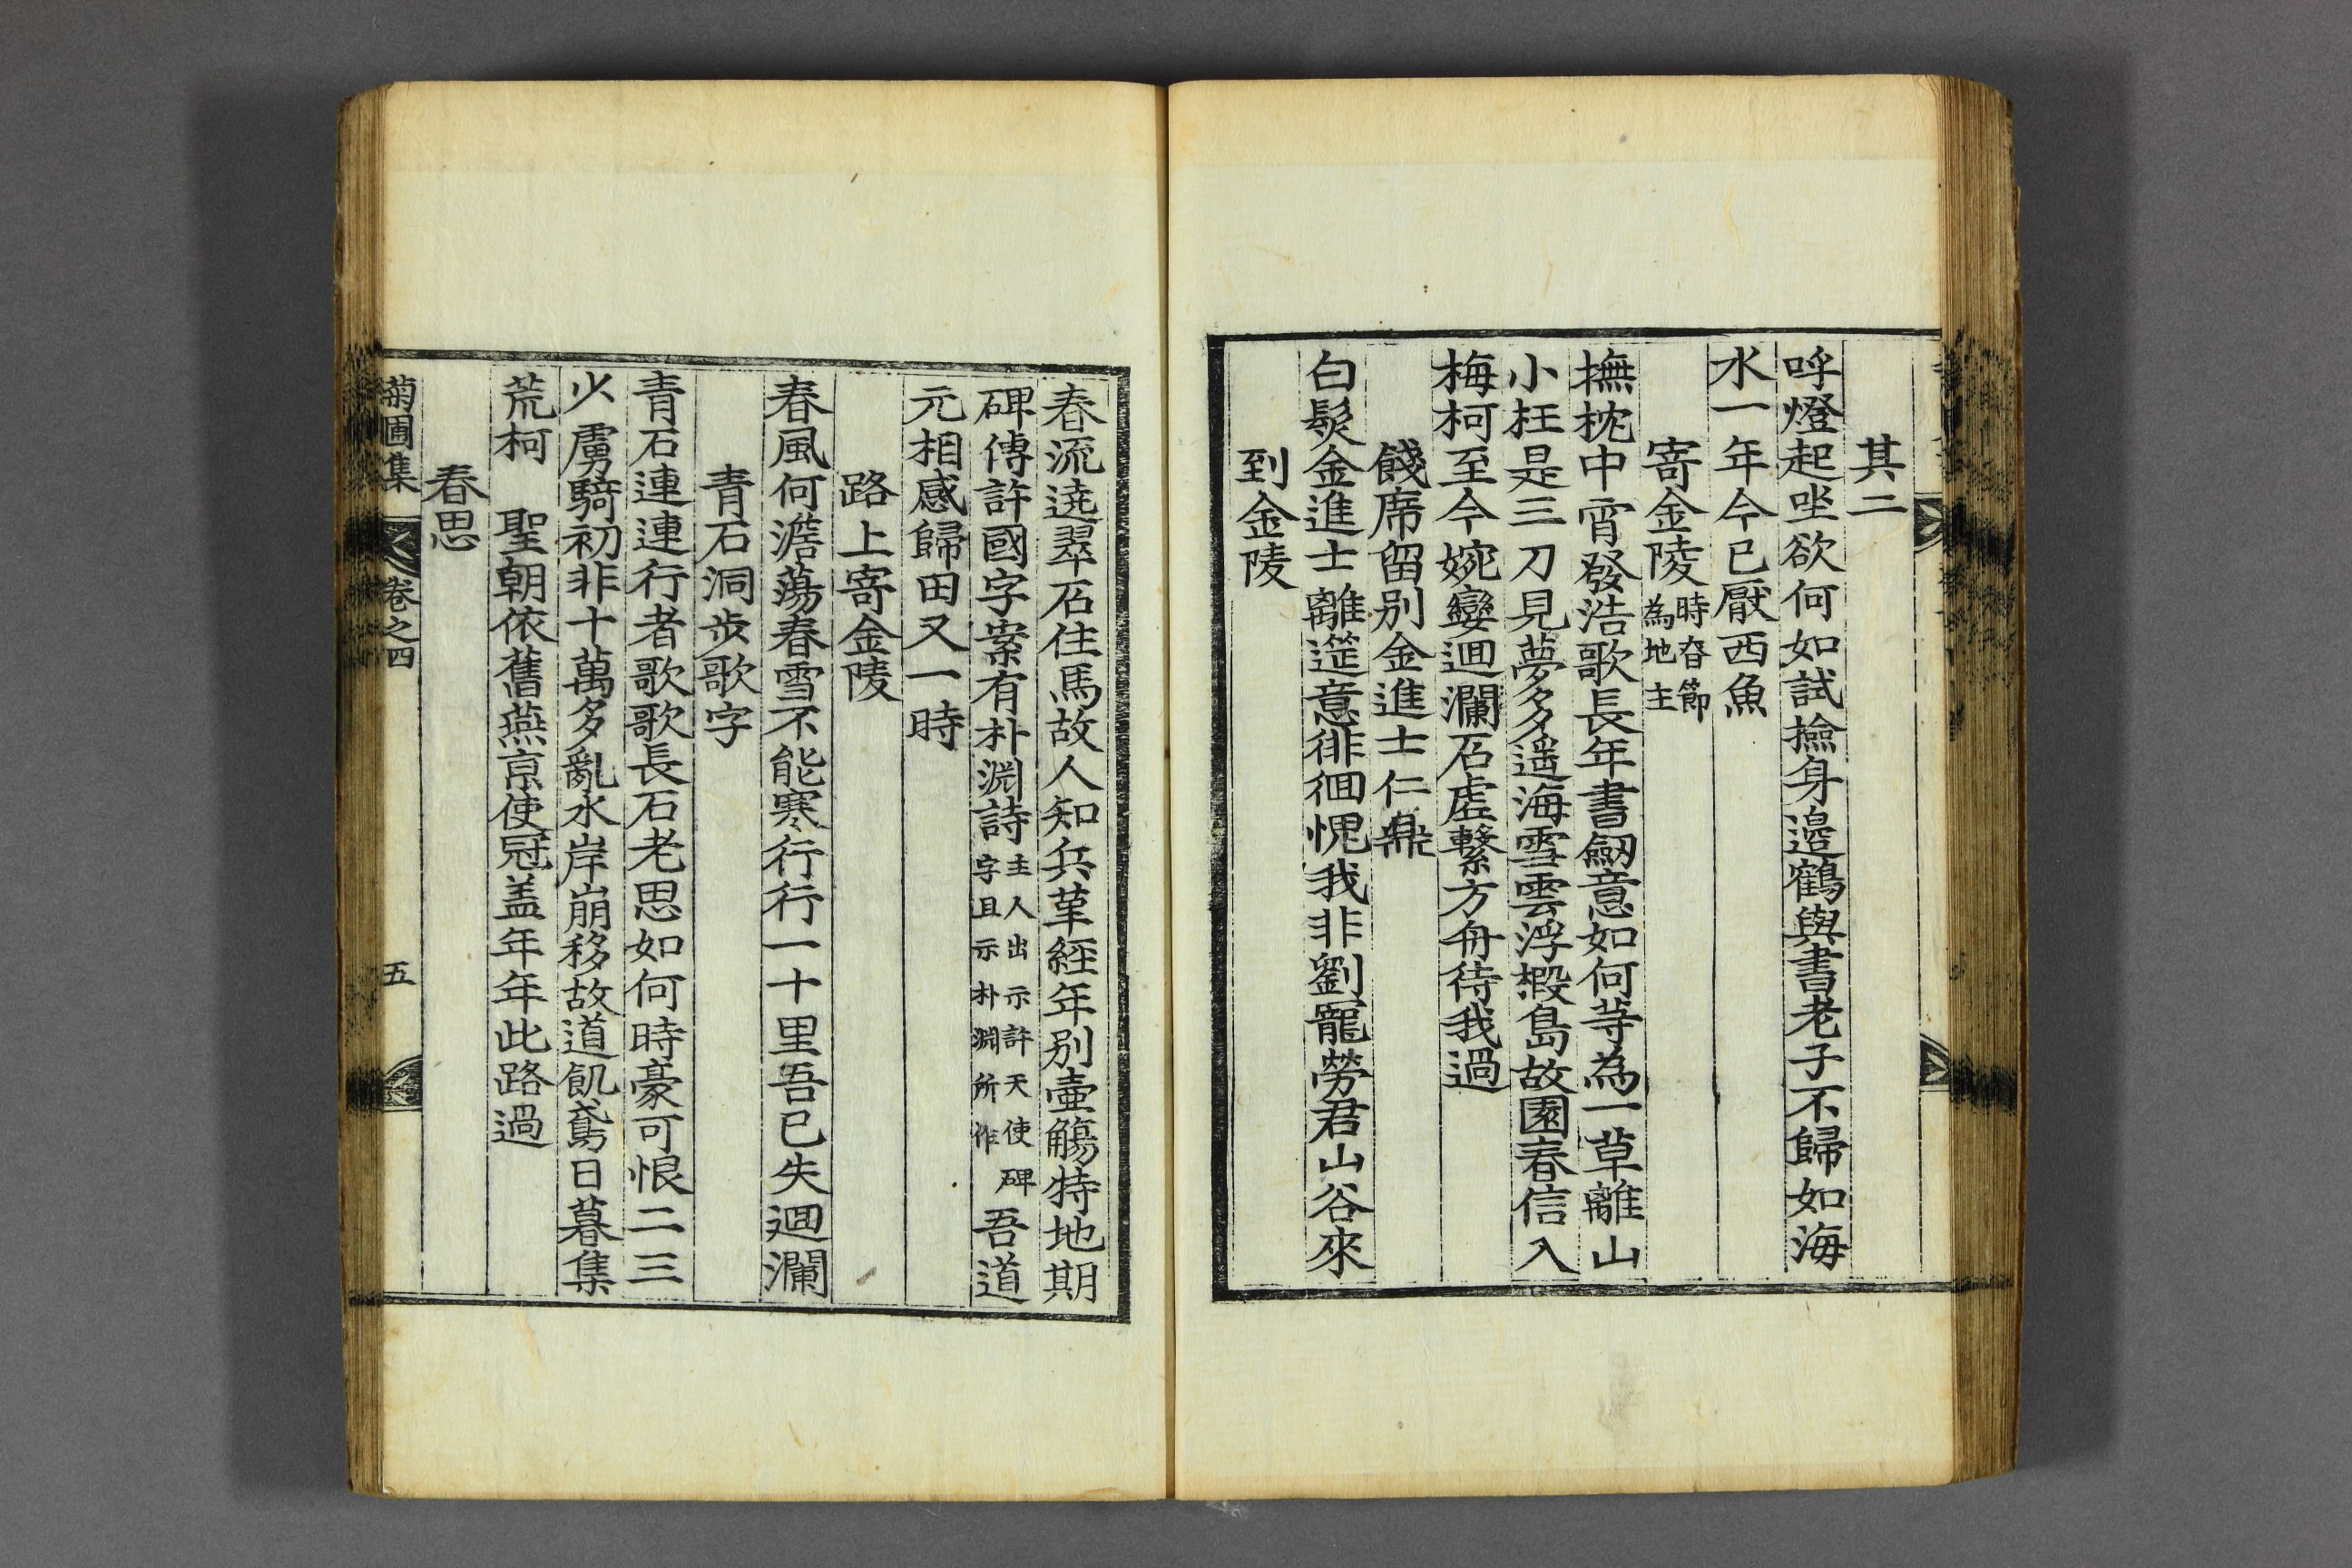 其二
呼燈起坐欲何如試撿身邊鶴與書老子不歸如海
水一年今已厭西魚
寄金陵時昚節為地主
撫枕中宵發浩歌長年書劒意如何等為一草離山
小枉是三刀見夢多遥海雪雲浮椵島故園春信入
梅柯至今婉孌迴瀾石虛繫方舟待我過
餞席留别金進士仁鼎
白髮金進士離筵意徘徊愧我非劉寵勞君山谷來
到金陵
春流遶翠石住馬故人知兵革經年别壷觴特地期
碑傳許國字案有朴淵詩主人出示許天使碑字且示朴淵所作吾道
元相感歸田又一時
路上寄金陵
春風何澹蕩春雪不能寒行行一十里吾已失迴瀾
青石洞步歌字
青石連連行者歌歌長石老思如何時豪可恨二三
少虜騎初非十萬多亂水岸崩移故道飢鳶日暮集
荒柯　聖朝依舊燕京使冠盖年年此路過
春思
菊圃集　卷之四　五